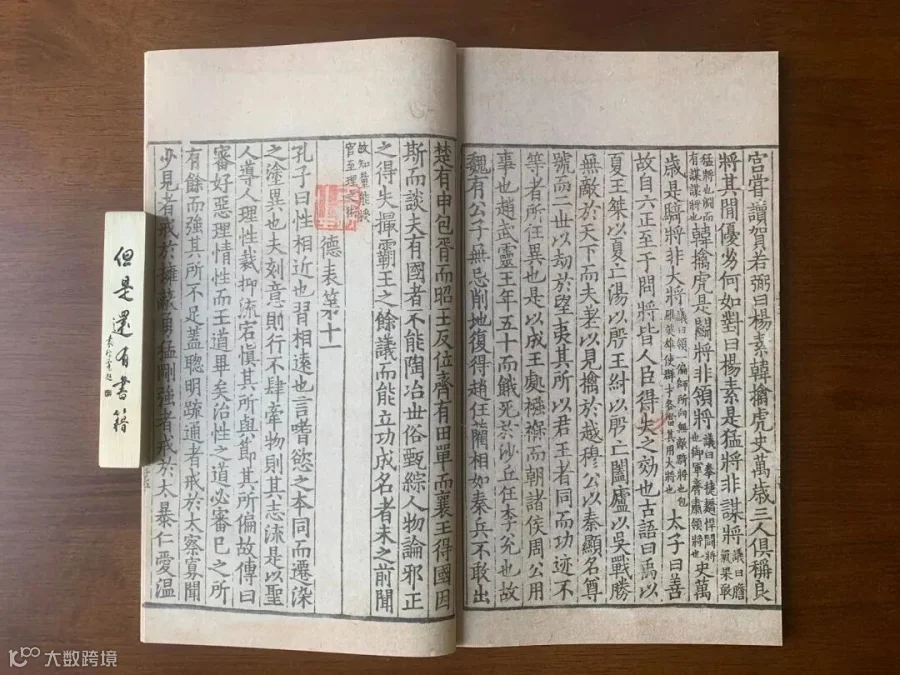 宮嘗讀賀若弼曰楊素韓擒虎史萬歲三人俱稱良
將其間優劣何如對曰楊素是猛將非謀將議曰膽氣果敢
猛將也
有謀謀將也韓擒虎是鬬將非領將議曰拳捷趫悍鬬將也御軍齊肅領將也史萬
歲是騎將非大將議曰領一偏師所向無敵騎將也包羅英雄使群才各當其用大將也太子曰善
故自六正至于問將皆人臣得失之効也古語曰禹以
夏王桀以夏亡湯以殷王紂以殷亡闔廬以吳戰勝
無敵於天下而夫差以見擒於越穆公以秦顯名尊
號而二世以劫於望夷其所以君王者同而功迹不
等者所任異也是以成王處襁褓而朝諸侯周公用
事也趙武靈王年五十而餓死於沙丘任李兌也故
魏有公子無忌削地復得趙任藺相如秦兵不敢出
楚有申包胥而昭王反位齊有田單而襄王得國因
斯而談夫有國者不能陶冶世俗甄綜人物論邪正
之得失撮霸王之餘議而能立功成名者未之前聞
故知量能授
官至理之術
德表第十一
孔子曰性相近也習相遠也言嗜慾之本同而遷染
之塗異也夫刻意則行不肆牽物則其志流是以聖
人導人理性裁抑流宕慎其所與節其所偏故傳曰
審好惡理情性而王道畢矣治性之道必審已之所
有餘而強其所不足蓋聰明疏通者戒於太察寡聞
少見者戒於擁蔽勇猛剛強者戒於太暴仁愛溫
但是還有書籍
大数跨境